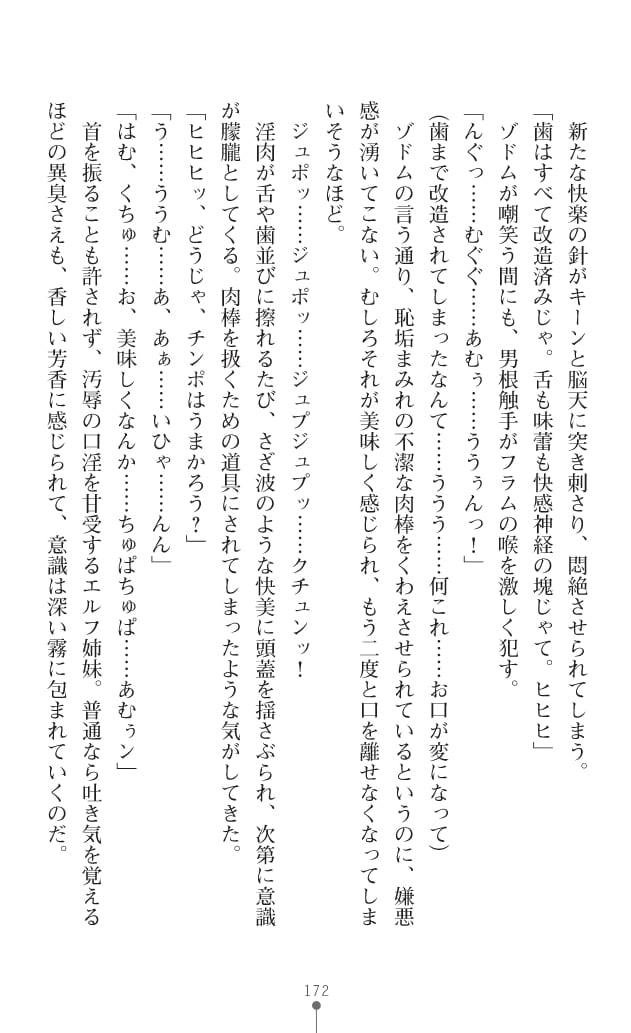 新たな快楽の針がキーンと脳天に突き刺さり、悶絶させられてしまう。
「歯はすべて改造済みじゃ。舌も味蕾も快感神経の塊じゃて。ヒヒヒ」
ゾドムが嘲笑う間にも、男根触手がフラムの喉を激しく犯す。
「んぐっ……むぐぐ……あむぅ……ううぅんっ！」
(歯まで改造されてしまったなんて……ううう……何これ……お口が変になって)
ゾドムの言う通り、恥垢まみれの不潔な肉棒をくわえさせられているというのに、嫌悪
感が湧いてこない。むしろそれが美味しく感じられ、もう二度と口を離せなくなってしま
いそうなほど。
ジュポッ……ジュポッ……ジュプジュプッ……クチュンッ！
淫肉が舌や歯並びに擦れるたび、さざ波のような快美に頭蓋を揺さぶられ、次第に意識
が朦朧としてくる。肉棒を扱くための道具にされてしまったような気がしてきた。
「ヒヒヒッ、どうじゃ、チンポはうまかろう？」
「う……ううむ……あ、あぁ……いひゃ……んん」
「はむ、くちゅ……お、美味しくなんか……ちゅぱちゅぱ……あむぅン」
首を振ることも許されず、汚辱の口淫を甘受するエルフ姉妹。普通なら吐き気を覚える
ほどの異臭さえも、香しい芳香に感じられて、意識は深い霧に包まれていくのだ。
172